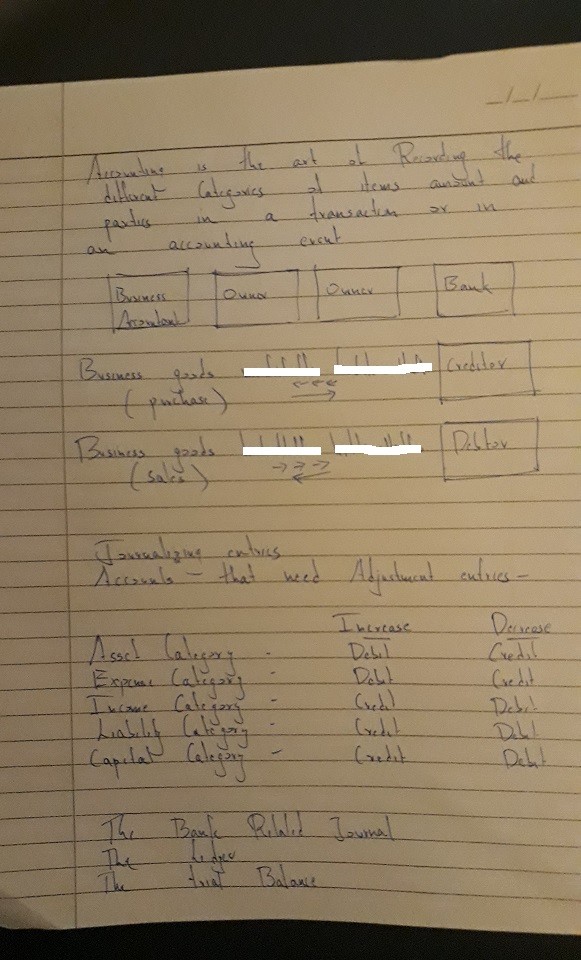 Accounting is the art of Recording the
different Categories of items amount and
parties in a transaction or in
an accounting event
Business Accountant Owner Owner Bank
Business goods Creditor
(purchase)
Business goods Debtor
(Sales)
Journalizing entries
Accounts - that need Adjustment entries -
Increase Decrease
Asset Category - Debit Credit
Expense Category - Debit Credit
Income Category - Credit Debit
Liability Category - Credit Debit
Capital Category - Credit Debit
The Bank Related Journal
The Ledger
The trial Balance